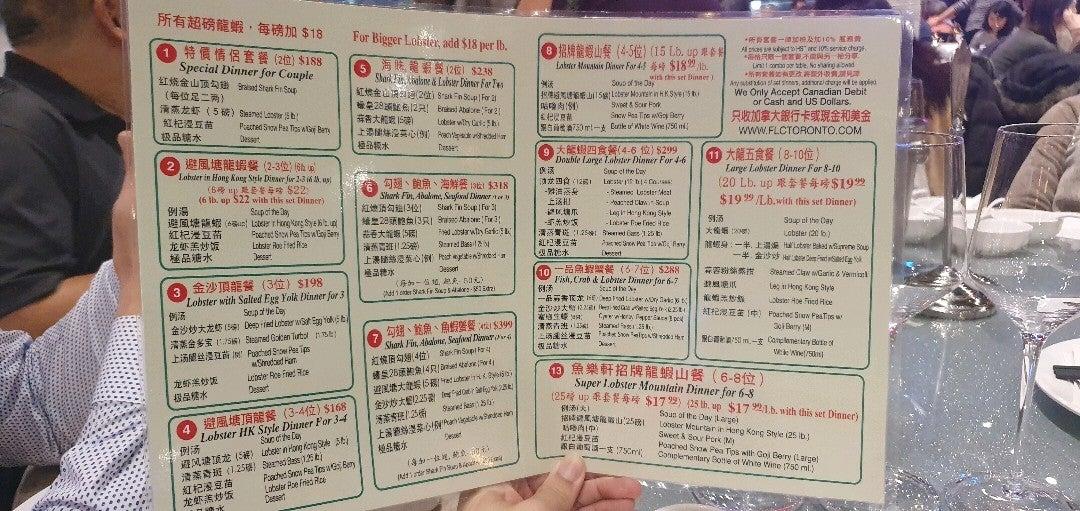 所有超磅龍蝦，每磅加 $18
For Bigger Lobster, add $18 per lb.
1 特價情侶套餐 (2位) $188
Special Dinner for Couple
紅燒金山頂勾翅 Braised Shark Fin Soup
(每位足二兩)
清蒸龙虾 (5磅) Steamed Lobster (5 lb.)
紅杞浸豆苗 Poached Snow Pea Tips w/Goji Berry
極品糖水 Dessert
2 避風塘龍蝦餐 (2-3位) (6lb up)
Lobster in Hong Kong Style Dinner for 2-3 (6 lb. up)
(6磅 up 跟套餐每磅 $22)
6 lb. up $22 with this set Dinner)
例汤 Soup of the Day
避風塘龍蝦 (6磅up) Lobster in Hong Kong Style (6 lb. up)
紅杞浸豆苗 Poached Snow Pea Tips w/Goji Berry
龙虾羔炒饭 Lobster Roe Fried Rice
極品糖水 Dessert
3 金沙頂龍餐 (3位) $198
Lobster with Salted Egg Yolk Dinner for 3
例汤 Soup of the Day
金沙炒大龙虾 (5磅) Deep Fried Lobster w/Salt Egg Yolk (5 lb.)
清蒸金多宝 (1.75磅) Steamed Golden Turbot (1.75 lb.)
上汤腿丝浸豆苗 (例) Poached Snow Pea Tips
w/Shredded Ham
龙虾羔炒饭 Lobster Roe Fried Rice
極品糖水 Dessert
4 避風塘頂龍餐 (3-4位) $168
Lobster HK Style Dinner For 3-4
例汤 Soup of the Day
避风塘顶龙 (5磅) Lobster in Hong Kong Style (5 lb.)
清蒸斋斑 (1.25磅) Steamed Bass (1.25 lb.)
紅杞浸豆苗 Poached Snow Pea Tips w/Goji Berry
龙虾羔炒饭 Lobster Roe Fried Rice
極品糖水 Dessert
5 海味龍蝦餐 (2位) $238
Shark Fin, Abalone & Lobster Dinner For Two
紅燒金山頂勾翅 (2位) Shark Fin Soup (For 2)
蠔皇28頭鮑魚 (2只) Braised Abalone (For 2)
蒜香大龍蝦 (5磅) Lobster w/Dry Garlic (5 lb.)
上湯腿絲浸菜心 (例) Peach Vegetable w/Shredded Ham
極品糖水 Dessert
6 勾翅、鮑魚、海鮮餐 (3位) $318
Shark Fin, Abalone, Seafood Dinner (For 3)
紅燒頂勾翅 (3位) Shark Fin Soup (For 3)
蠔皇28頭鮑魚 (3只) Braised Abalone (For 3)
蒜香大龍蝦 (5磅) Fried Lobster w/Dry Garlic (5 lb.)
清蒸斋班 (1.25磅) Steamed Bass (1.25 lb.)
上湯腿絲浸菜心 (例) Peach vegetable w/Shredded Ham
極品糖水 Dessert
(Add 1 order Shark Fin Soup & Abalone - $50 Extra)
7 勾翅、鮑魚、魚蝦蟹餐 (4位) $399
Shark Fin, Abalone, Seafood Dinner (For 4)
紅燒頂勾翅 (4位) Shark Fin Soup (For 4)
蠔皇28頭鮑魚 (4只) Braised Abalone (For 4)
避風塘大龍蝦 (5磅) Fried Lobster in H. K. Style (5 lb.)
金沙炒大蟹 (2.25磅) Deep Fried Crab w/Salt Egg Yolk (2.25 lb.)
清蒸斋班 (1.25磅) Steamed Bass (1.25 lb.)
上湯腿絲浸菜心 (例) Peach Vegetable w/Shredded Ham
極品糖水 Dessert
8 招牌龍蝦山餐 (4-5位) (15 Lb. up 跟套餐
Lobster Mountain Dinner For 4-5 每磅 $18.99/lb.
with this set Dinner)
例汤 Soup of the Day
招牌避風龍蝦山 (15磅) Lobster Mountain in H.K. Style (15 lb.)
咕嚕肉 (例) Sweet & Sour Pork
紅杞浸豆苗 Poached Snow Pea Tips w/Goji Berry
蛋白葡萄酒750 ml一支 Bottle of White Wine (750 ml.)
9 大龍蝦四食餐 (4-6位) $299
Double Large Lobster Dinner For 4-6
例汤 Soup of the Day
顶龙四食 (12磅) Lobster (12 lb.) 4 Courses:
Steamed Lobster Meat
Poached Claw in Soup
Leg in Hong Kong Style
Lobster Roe Fried Rice
清蒸斋斑 (1.25磅) Steamed Bass (1.25 lb)
紅杞浸豆苗 Poached Snow Pea Tips w/Goji Berry
極品糖水 Dessert
10 一品魚龍蝦蟹餐 (6-7位) $288
Fish, Crab & Lobster Dinner for 6-7
例汤 Soup of the Day
Deep Fried Lobster w/Dry Garlic (6 lb.)
清蒸斋斑 Steamed Bass (1.25 lb.)
紅杞浸豆苗 Poached Snow Pea Tips w/Goji Berry
極品糖水 Dessert
13 魚樂軒招牌龍蝦山餐 (6-8位)
Super Lobster Mountain Dinner for 6-8
(25磅 up 跟套餐每磅 $17.99) (25 lb. up $17.99/Lb. with this set Dinner)
例汤(大) Soup of the Day (Large)
招牌避風塘龍蝦山 (25磅) Lobster Mountain in Hong Kong Style (25 lb.)
咕嚕肉 (中) Sweet & Sour Pork (M)
紅杞浸豆苗 Poached Snow Pea Tips with Goji Berry (Large)
蛋白葡萄酒一支 (750ml) Complementary Bottle of White Wine (750 ml.)
All prices are subject to HST and 10% service charge.
Limit 1 combo per table. No sharing allowed
Any substitution of set dinners, additional charge will be applied.
We Only Accept Canadian Debit
or Cash and US Dollars.
只收加拿大銀行卡或現金和美金
WWW.FLCTORONTO.COM
11 大龍五食餐 (8-10位)
Large Lobster Dinner For 8-10
(20 Lb. up 跟套餐每磅 $19.99
$19.99/Lb. with this set Dinner)
例汤 Soup of the Day
大龍蝦 (20磅) Lobster (20 lb.)
龍蝦身: 一半. 上湯焗 Half Lobster Baked w/Supreme Soup
一半. 金沙炒 Half Lobster Deep Fried w/Salted Egg Yolk
蒜蓉粉絲蒸钳 Steamed Claw w/Garlic & Vermicelli
避風塘爪 Leg in Hong Kong Style
龍蝦羔炒飯 Lobster Roe Fried Rice
紅杞浸豆苗 (中) Poached Snow Pea Tips w/
Goji Berry (M)
蛋白葡萄酒750 ml 一支 Complimentary Bottle of
White Wine (750ml)